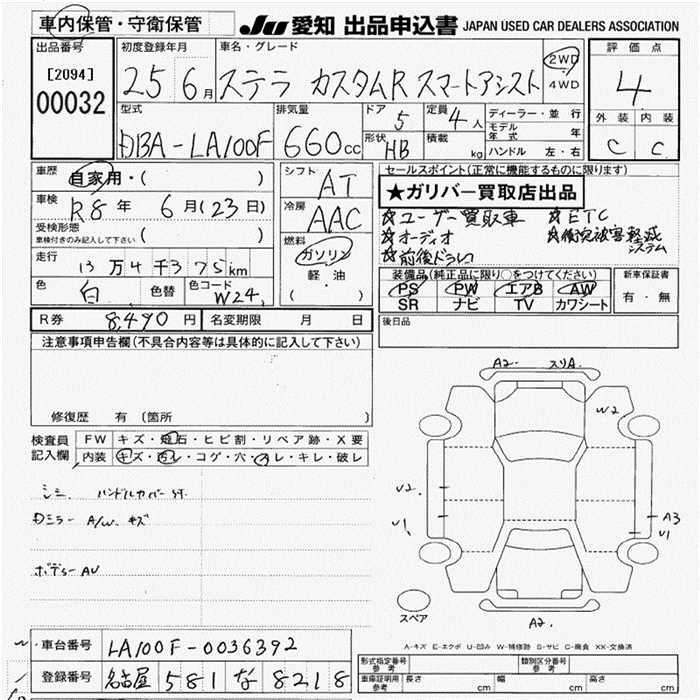 車内保管・守衛保管
JU 愛知 出品申込書 JAPAN USED CAR DEALERS ASSOCIATION
出品番号
[2094]
00032
初度登録年月
25 6月
車名・グレード
ステラ カスタムR スマートアシスト
2WD
4WD
評価点
4
外装 内装
C C
型式
DBA-LA100F
排気量
660cc
ドア 5
形状 HB
定員 4人
積載 kg
ディーラー・並行
モデル年式 年
ハンドル 左・右
車歴
自家用・( )
車検
R8年 6月(23日)
受検形態
車検付きのみ記入して下さい ( )
走行
13万4千375km
色 白 色替 色コード W24
シフト
AT
冷房
AAC
燃料
ガソリン
軽油
( )
セールスポイント(正常に機能するものに限ります)
★ガリバー買取店出品
☆ユーザー買取車 ☆ETC
☆オーディオ ☆衝突被害軽減システム
☆前後ドラレコ
装備品(純正品に限り○をつけてください)
PS PW エアB AW
SR ナビ TV カワシート
新車保証書
有・無
R券 8,490円 名変期限 月 日
後日品
注意事項申告欄(不具合内容等は具体的に記入して下さい)
修復歴 有 〔箇所 〕
検査員記入欄
FW キズ・飛石・ヒビ割・リペア跡・X要
内装 キズ・汚レ・コゲ・穴・スレ・キレ・破レ
シミ ハンドルカバー付
Dミラー A/W キズ
ボデー AU
A2 スリA
W2
U2
V1
A3
V1
A2
スペア
A-キズ E-エクボ U-凹み W-補修跡 S-サビ C-腐食 XX-交換済
車台番号 LA100F-0036392
登録番号 名古屋 581 な 8218
型式指定番号 参考
類別区分番号 参考
車庫証明用 参考 長さ cm 幅 cm 高さ cm